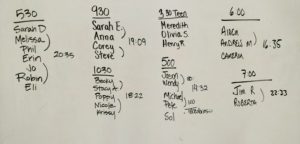 530
Sarah D
Melissa
Phil
Erin
Jo
Robin
Eli
20:35
930
Sarah E.
Anna
Corey
Steve
19:09
1030
Becky
Stacy A
Poppy
Nicole
Krissy
18:22
3:30 Teen
Meredith
Olivia S.
Henry R
500
Jason
Wendy
Michael
Pete
Sol
19:32
6:00
Andrew M
Cameron
16:35
7:00
Jim R
Roberta
22:33